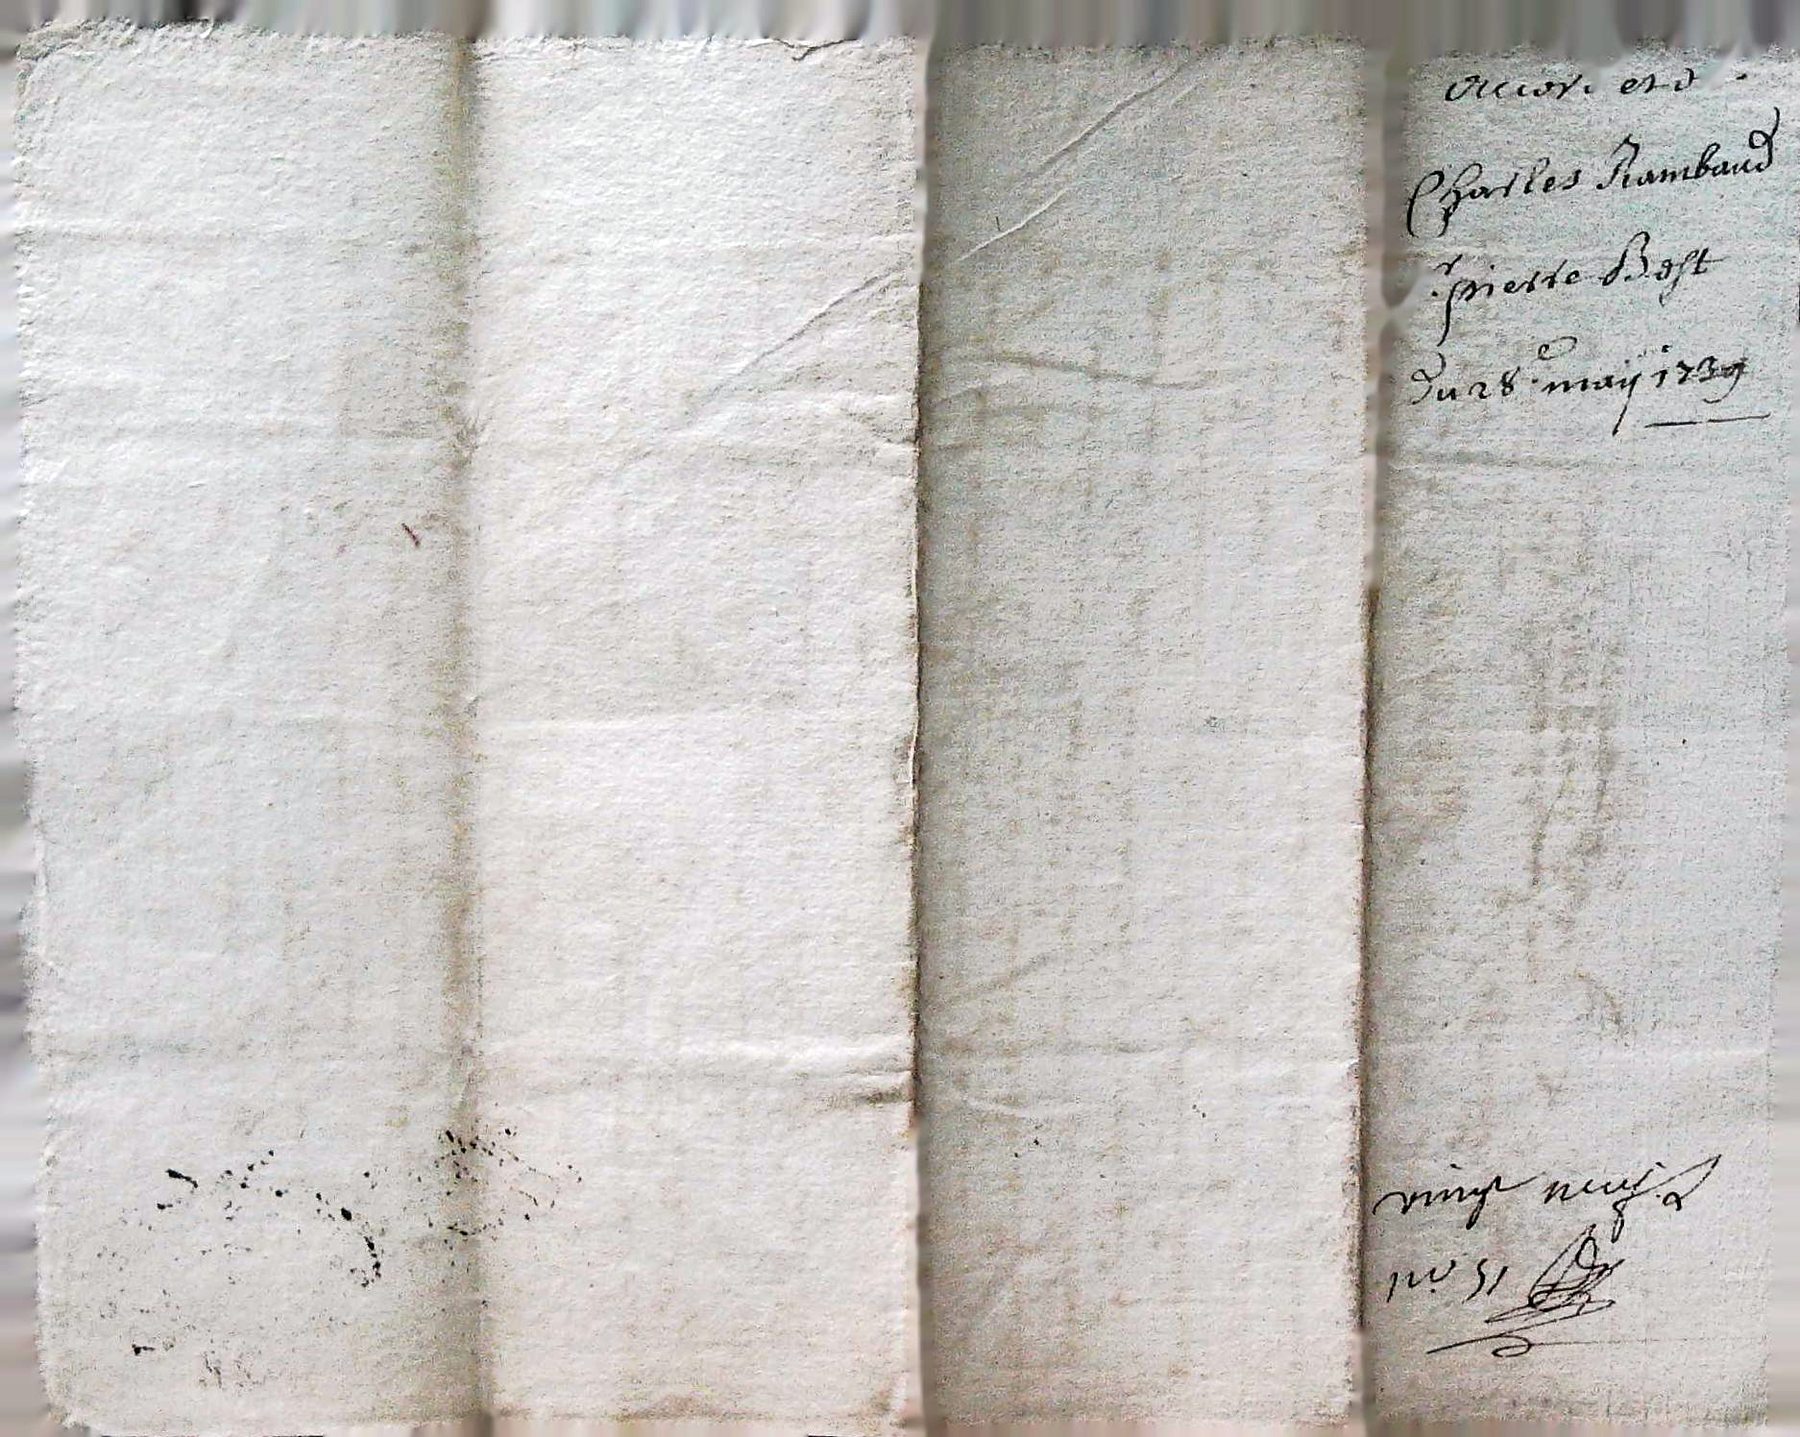 Accord entre
Charles Rambaud
pierre Bost
du 28e may 1739
vingt neuf
no 51